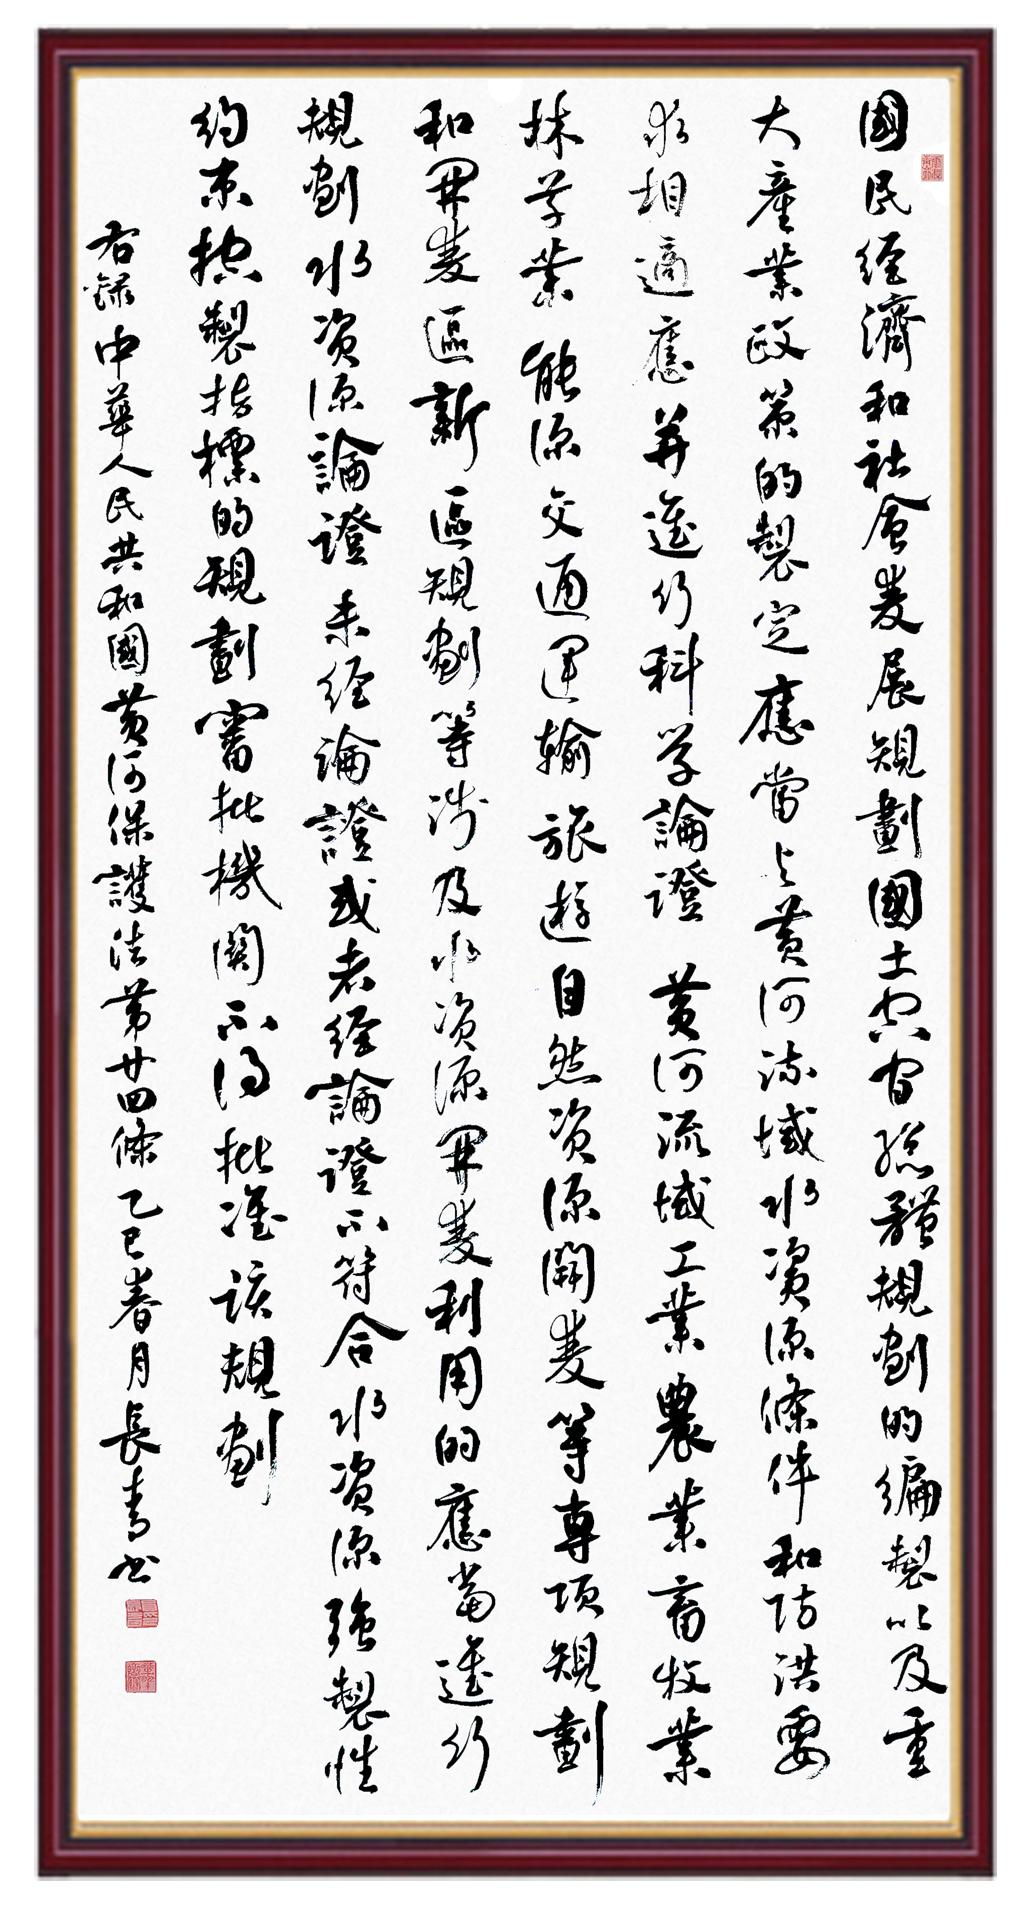 國民經濟和社會發展規劃國土空間總體規劃的編製以及重
大產業政策的製定應當與黃河流域水資源條件和防洪要
求相適應並進行科學論證 黃河流域工業農業畜牧業
林草業能源交通運輸旅遊自然資源開發等專項規劃
和開發區新區規劃等涉及水資源開發利用的應當進行
規劃水資源論證未經論證或者經論證不符合水資源強製性
約束控製指標的規劃審批機關不得批准該規劃
右錄中華人民共和國黃河保護法第廿四條乙巳春月長青書